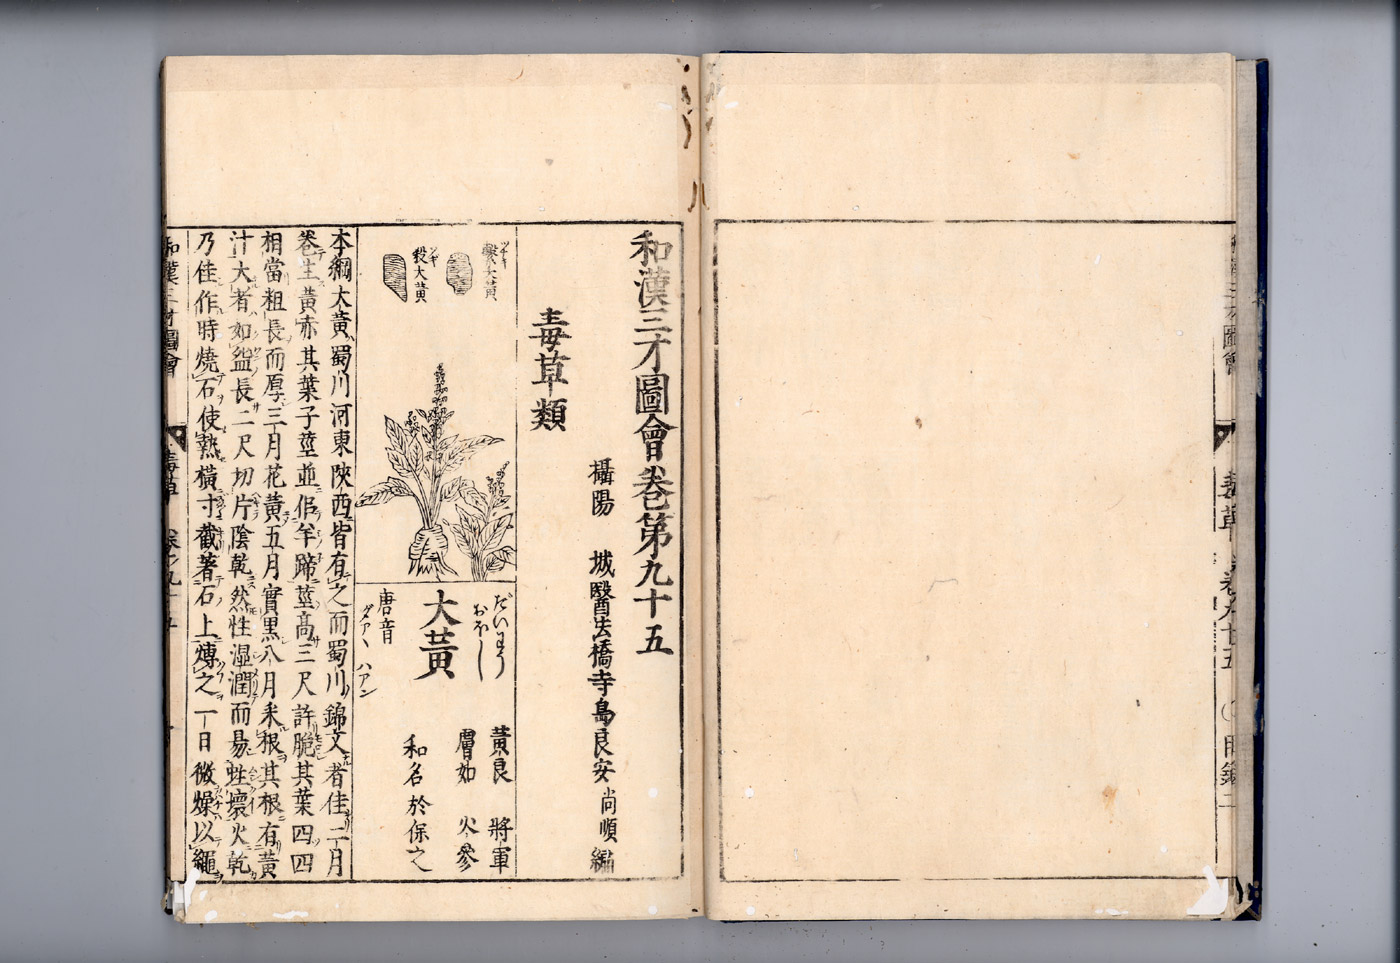 和漢三才圖會卷第九十五
攝陽　城醫法橋寺島良安尚順編
毒草類
大黃
だいわう
おほし
唐音
ダアヽ ハアン
黃良　將軍
膚如　火參
和名於保之
本綱大黃蜀川河東陝西皆有之而蜀川錦文者佳二月
卷生黃赤其葉子莖並似羊蹄莖高三尺許脆其葉四四
相當粗長而厚三月花黃五月實黑八月采根其根有黃
汁大者如盌長二尺切片陰乾然性濕潤而易蛀壞火乾
乃佳作時燒石使熱橫寸截著石上煿之一日微燥以繩
和漢三才圖會
毒草　卷九十五